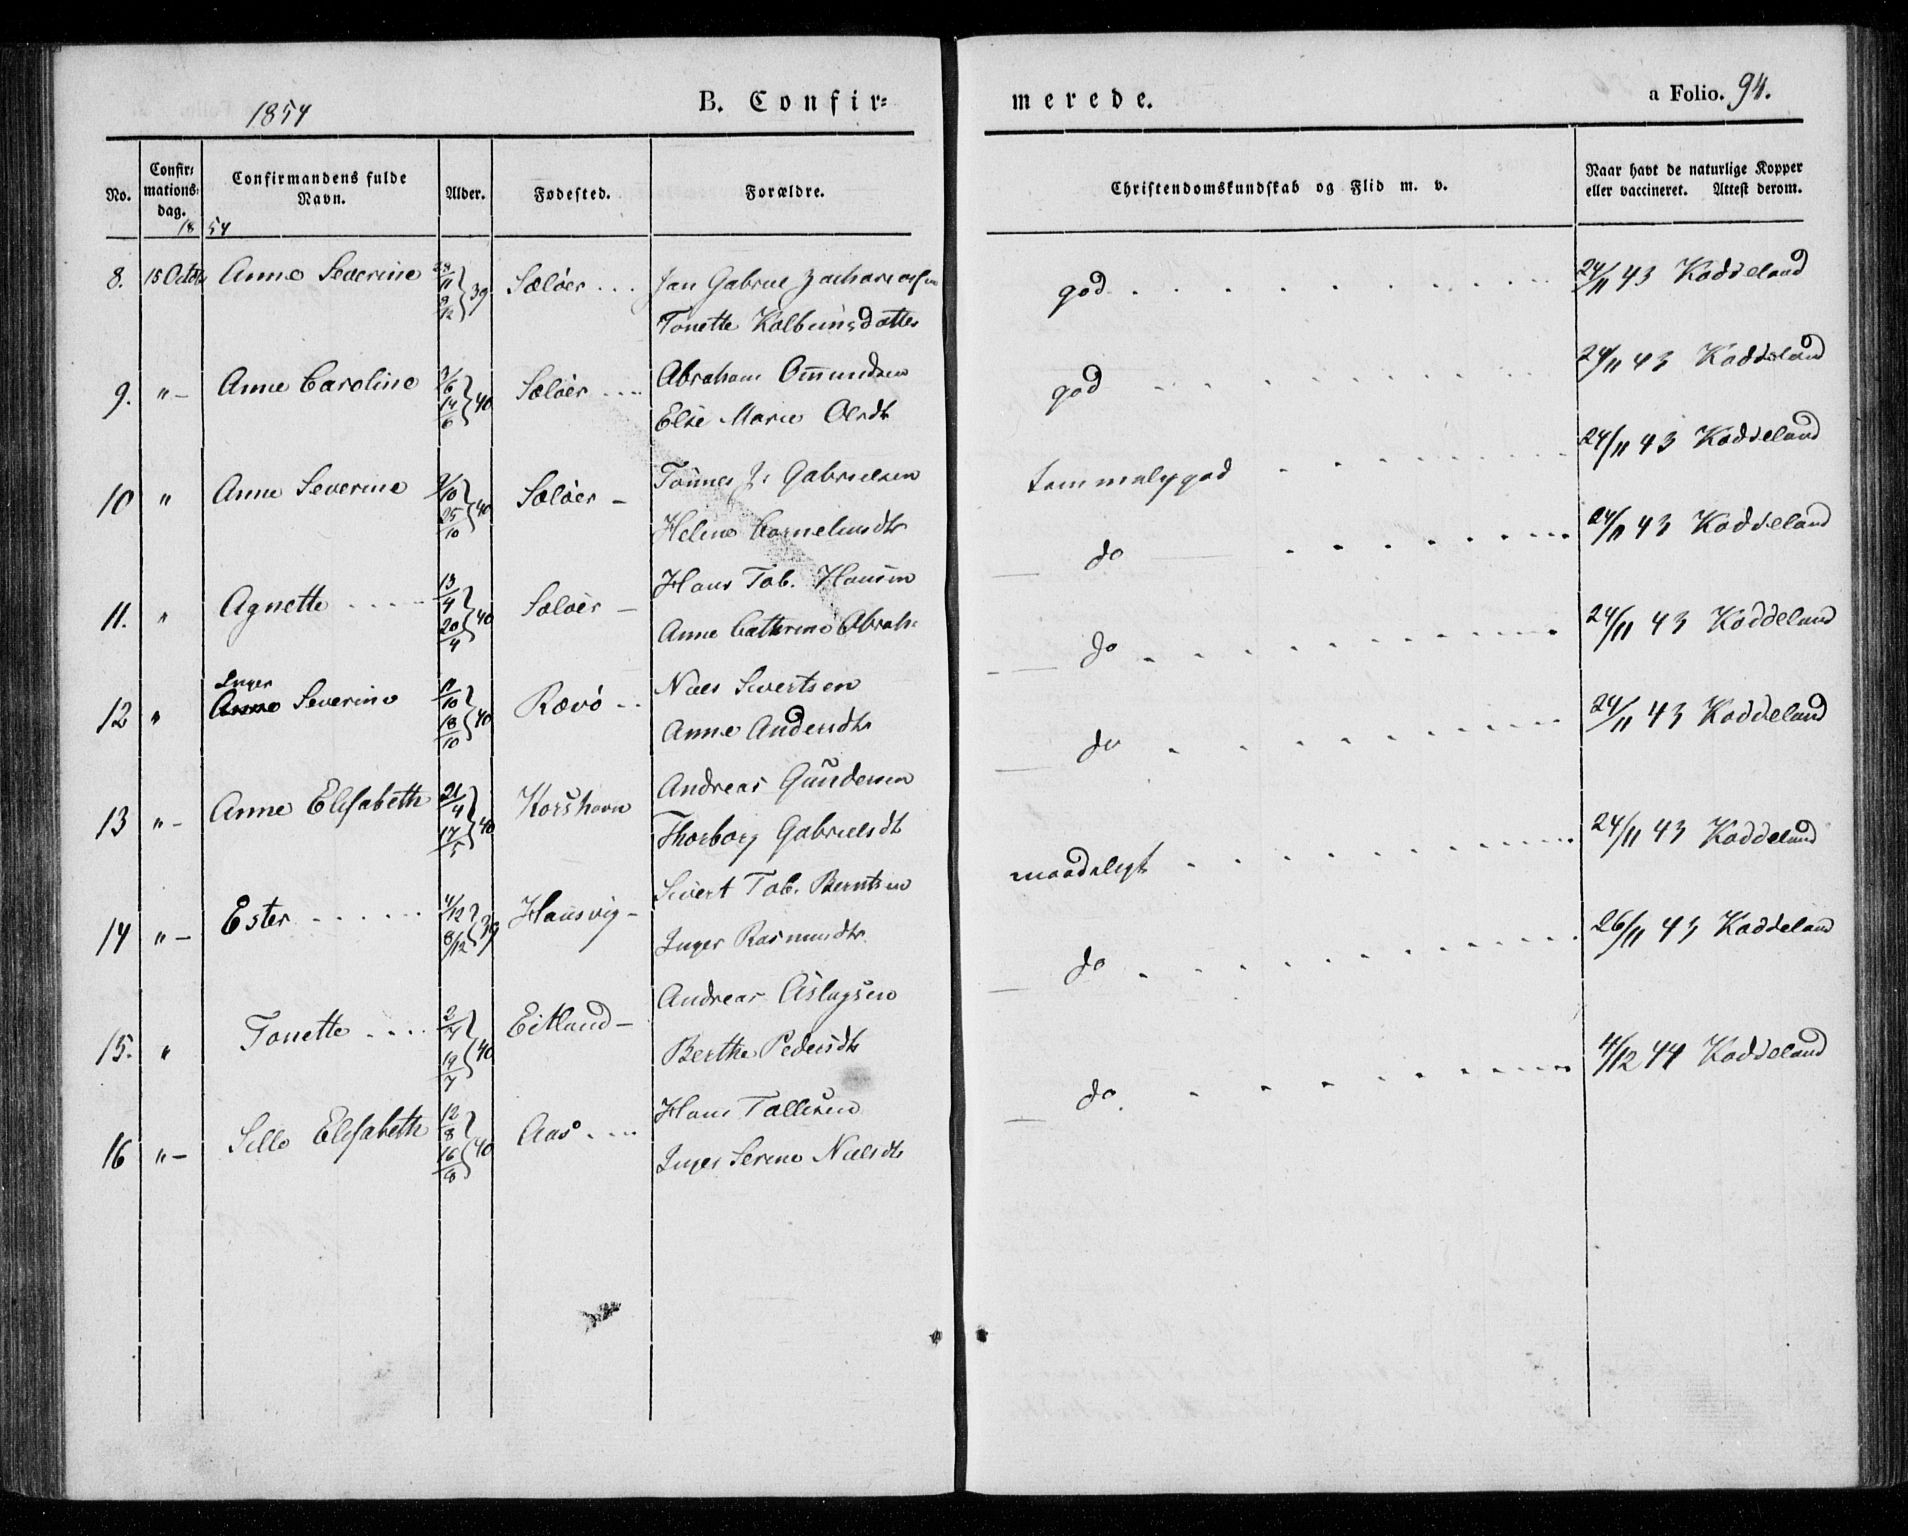 1854
B. Confir=
merede.
a Folio. 94.
No.
Confir=
mations=
dag.
Confirmandens fulde
Navn.
Alder.
Fodested.
Forældre.
Christendomskundskab og Flid m. v.
Naar havt de naturlige Kopper
eller vaccineret. Attest derom.
18 54
8. 15 Octbr Anne Severine 28/11 9/12 39 Sæløer Jan Gabriel
Tonette god 24/11 43 Kaddeland
9. " Anne Caroline 9/6 14/6 40 Sæløer Abraham Omundsen
Else Marie Olsdt god 24/11 43 Kaddeland
10 " Anne Severine 9/10 25/10 40 Sæløer Tønnes J. Gabrielsen
Helene Corneliusdtr temmelig god 24/11 43 Kaddeland
11. " Agnette 13/4 20/4 40 Sæløer Hans Tob. Hansen
Anne Cathrine Abrah: do 24/11 43 Kaddeland
Inger
12 " Anne Severine 11/10 18/10 40 Rævø Naes Sivertsen
Anne Andersdtr do 24/11 43 Kaddeland
13 " Anne Elisabeth 21/4 17/5 40 Korshavn Andreas Gundersen
Thorborg Gabrielsdt do 24/11 43 Kaddeland
14 " Ester 4/12 8/12 39 Hausvig Sivert Tob. Berntsen
Inger Rasmusdtr maadeligt 24/11 43 Kaddeland
15. " Tonette 2/7 19/7 40 Eitland Andreas Aslagsen
Berthe Pedersdtr do 26/11 43 Kaddeland
16 " Sille Elisabeth 12/8 16/8 40 Aas Hans Tallisen
Inger Serine Nælsdtr do 4/12 44 Kaddeland